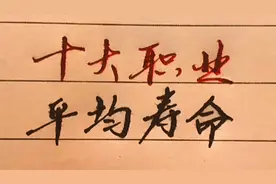 十大职业
平均寿命